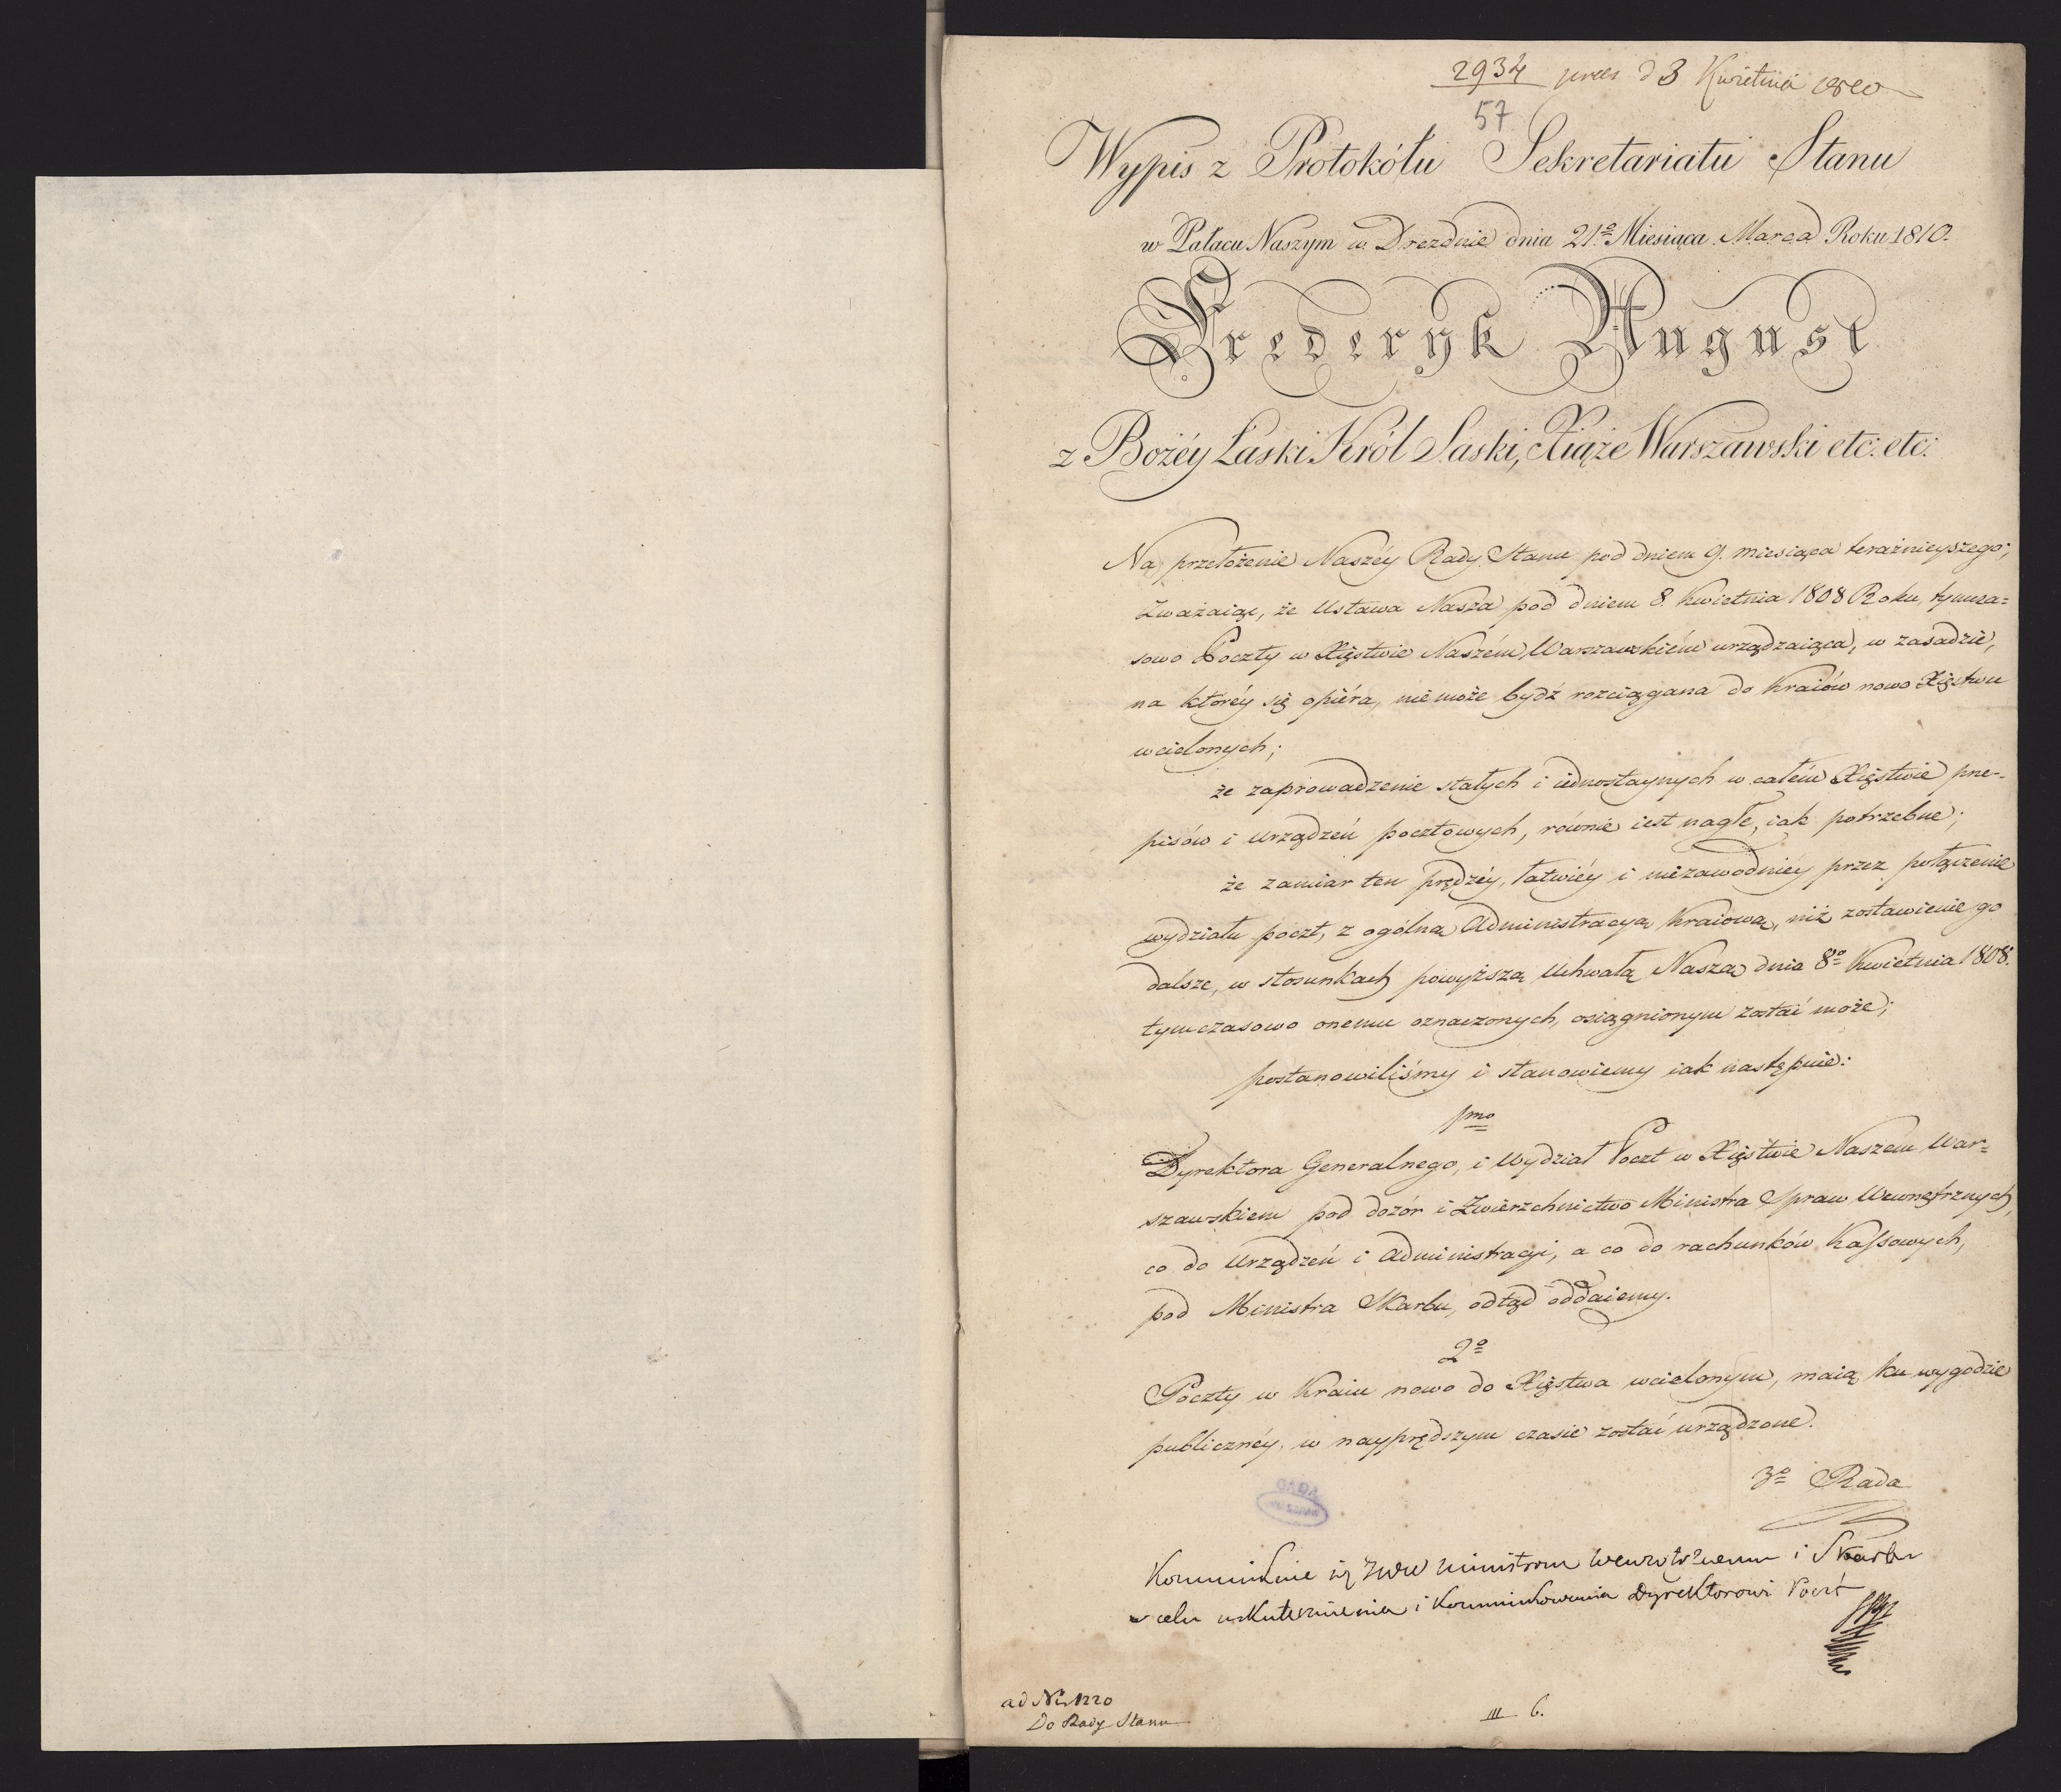 2934 prees d 3 Kwietnia 1810
57
Wypis z Protokółu Sekretariatu Stanu
w Pałacu Naszym w Dreznie dnia 21º Miesiąca Marca Roku 1810.
Frederyk August
z Bożéy Łaski Król Saski, Xiąże Warszawski etc: etc:
Na przełożenie Naszéy Rady Stanu pod dniem 9. miesiąca teraźnieyszego;
Zważaiąc, że Ustawa Nasza pod dniem 8. Kwietnia 1808 Roku, tymcza=
sowo Poczty w Xięstwie Naszém Warszawskiém urządzaiąca, w zasadzie,
na któréy się opiéra, nie może bydź rozciągana do Kraiów nowo Xięstwu
wcielonych;
że zaprowadzenie stałych i iednostaynych w całém Xięstwie prze-
pisów i urządzeń pocztowych, równie iest nagłe, iak potrzebne;
że zamiar ten prędzéy, łatwiéy i niezawodniéy przez połączenie
wydziału poczt, z ogólną Administracyą Kraiową, niż zostawienie go
dalsze, w stosunkach powyższą Uchwałą Naszą dnia 8º Kwietnia 1808.
tymczasowo onemu oznaczonych, osiągnionym zostać może;
postanowiliśmy i stanowiemy iak następuie:
1mo
Dyrektora Generalnego, i Wydział Poczt w Xięstwie Naszem War=
szawskiem pod dozór i Zwierzchnictwo Ministra Spraw Wewnętrznych,
co do Urządzeń i Administracyi, a co do rachunków Kassowych,
pod Ministra Skarbu, odtąd oddaiemy.
2º
Poczty w Kraiu nowo do Xięstwa wcielonym, maią ku wygodzie
publicznéy, w nayprędszym czasie zostać urządzone.
3º Rada
AGAD
Kommunikuie się JWW Ministrom Wewnętrznemu i Skarbu
w celu uskutecznienia i kommunikowania Dyrektorowi Poczt
ad Nr 1220
Do Rady Stanu
III. 6.